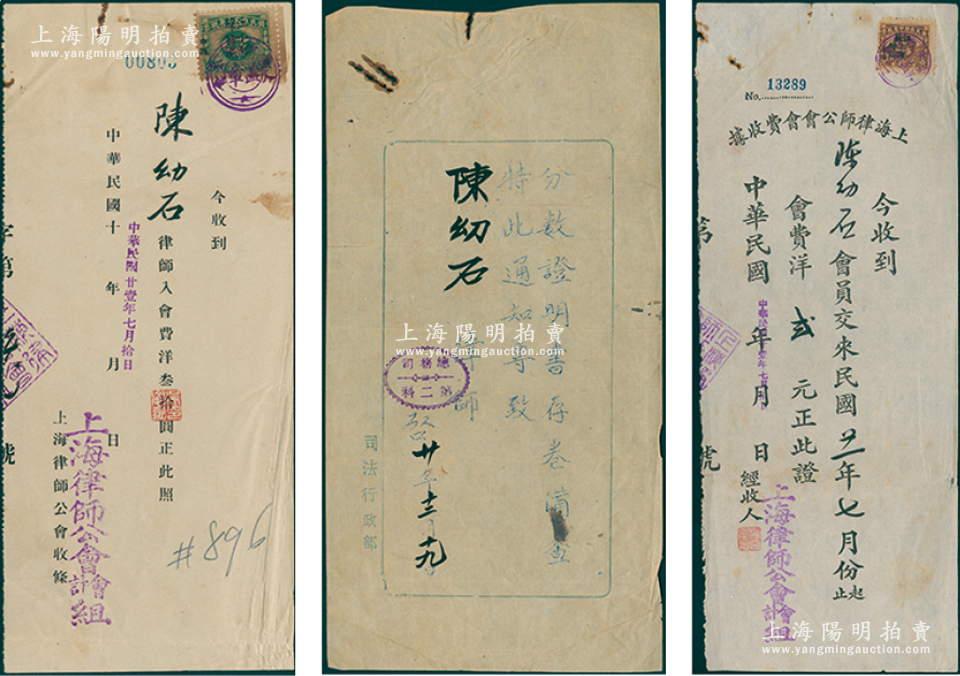 上海陽明拍賣
www.yangmingauction.com
今收到
陳幼石 律師入會費洋叁拾圓正此照
中華民國廿壹年七月拾日
中華民國十 年 月 日
上海律師公會收條
上海律師公會會計組
字第 號
#896
分數證明書存卷備查
特此通知等致
陳幼石 律師
啟 廿年十二月十九
總務司
第二科
司法行政部
上海陽明拍賣
www.yangmingauction.com
No. 13289
上海律師公會會費收據
今收到
陳幼石會員交來民國廿一年七月份起止
會費洋 貳 元正此證
中華民國 年 月 日 經收人
上海律師公會會計組
第 號
上海陽明拍賣
www.yangmingauction.com
上海陽明拍賣
www.yangmingauction.com